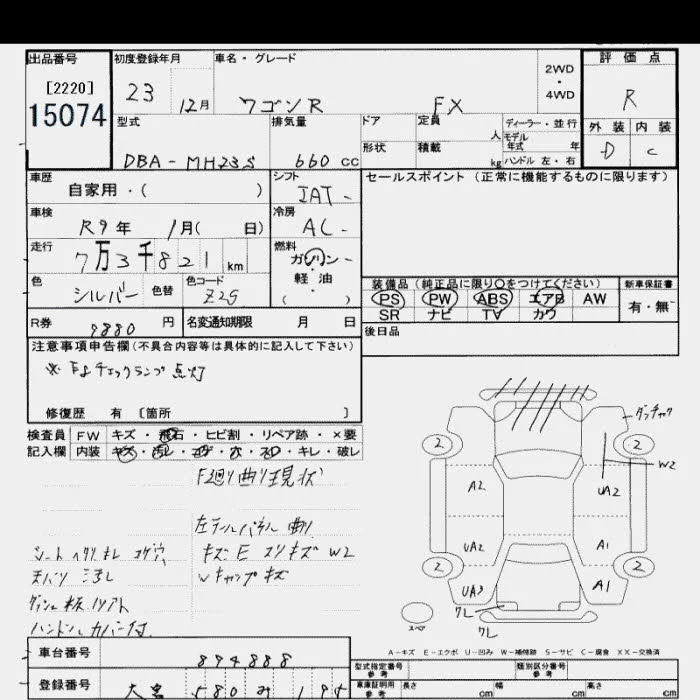 出品番号
[2220]
15074
初度登録年月
23 12月
車名・グレード
ワゴンR FX
2WD
・
4WD
評価点
R
外装 内装
D C
型式
DBA-MH23S
排気量
660 cc
ドア
形状
定員
人
積載
kg
ディーラー・並行
モデル
年式 年
ハンドル 左・右
車歴
自家用・( )
シフト
IAT
車検
R9年 1月( 日)
冷房
AC
走行
7万3千821 km
燃料
ガソリン
軽油
( )
色
シルバー
色替
色コード
Z2S
R券
9880 円
名変通知期限 月 日
セールスポイント (正常に機能するものに限ります)
装備品 (純正品に限り○をつけてください)
PS PW ABS エアB AW
SR ナビ TV カワ
新車保証書
有・無
後日品
注意事項申告欄(不具合内容等は具体的に記入して下さい)
※ チェックランプ 点灯
修復歴 有 [箇所 ]
検査員
記入欄
FW キズ・飛石・ヒビ割・リペア跡・×要
内装 キズ・汚レ・コゲ・穴・スレ・キレ・破レ
F廻り曲り現状
左テールパネル曲り
シート ヘタリ キレ コゲ穴
キズ E スリキズ W2
天バリ ヨゴレ
Wキャップキズ
ハンドルカバー付
W2
2 2
A2 UA2
UA2 A1
2 2
UA3 A1
ワレ
スペア
ワレ
A-キズ E-エクボ U-凹み W-補修跡 S-サビ C-腐食 XX-交換済
車台番号
894888
登録番号
580 み 195
型式指定番号
参考
類別区分番号
参考
車庫証明用
参考
長さ cm
幅 cm
高さ cm